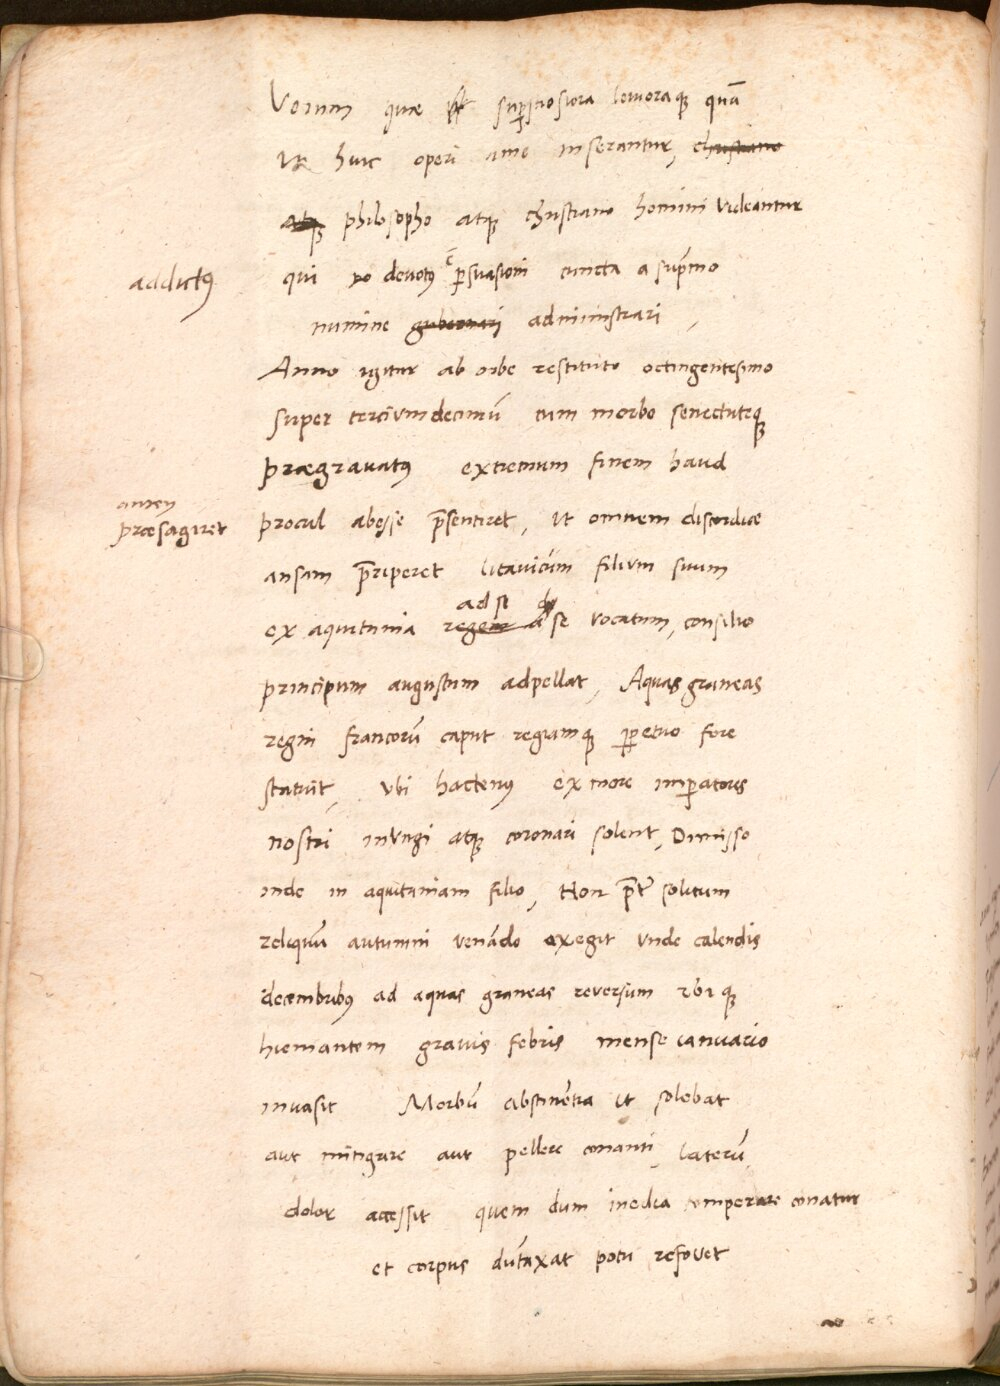 Verum quae sūt sup̄stitiosiora levioraque quā
ut huic operi a me inserantur, christiano
atque philosopho atque christiano homini videantur
addictꝰ
qui deuotꝰ ē p̱suasioni cuncta a sup̄mo
numine gubernari administrari,
Anno igitur ab orbe restituto octingentesimo
super terciumdecimū cum morbo senectuteque
praegravatꝰ extremum finem haud
praesagiret
procul abesse p̄sentiret, ut omnem discordiae
ansam p̄riperet litavicum filium suum
ad se
ex aquitania regem a se vocatum, consilio
principum augustum adpellat, Aquas graneas
regni francorū caput regiamque p̱petuo fore
statuit, ubi hactenꝰ ex more imp̱atores
nostri inungi atque coronari solent, Dimisso
inde in aquitaniam filio, Non p̄t̄ solitum
reliquū autumni venādo exegit unde calendis
decembribꝰ ad aquas graneas reversum ibique
hiemantem gravis febris mense ianuario
invasit Morbū abstinētia ut solebat
aut mitigare aut pellere conanti, laterū
dolor accessit quem dum inedia temperare conatur
et corpus dūtaxat potu refovet